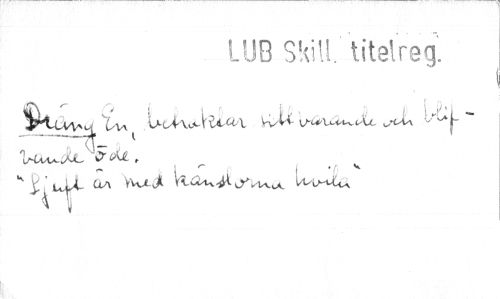 LUB Skill. titelreg.
Dräng En, betraktar sitt varande och blif-
vande öde.
"Ljuft är med känslorna hvila"